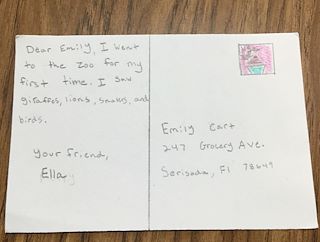 Dear Emily, I went
to the zoo for my
first time. I saw
giraffes, lions, snakes, and
birds.
Your friend,
Ella
Emily Cart
247 Grocery Ave.
Serisoda, Fl 78649